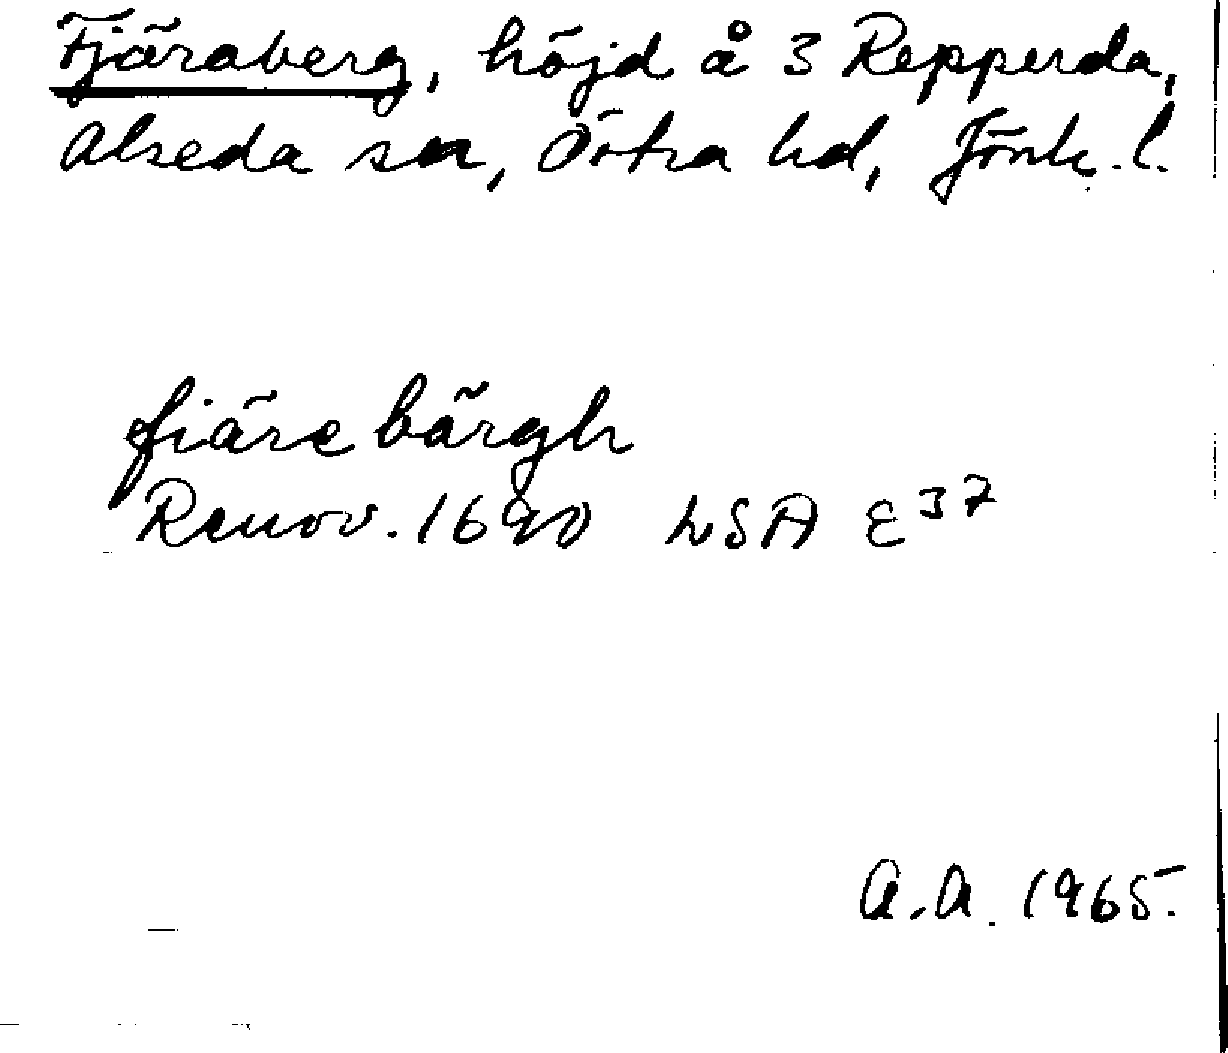 Fjäraberg, höjd å 3 Repperda,
Alseda sn, Östra hd, Jönk. l.
fiäre bärgh
Renov. 1690 LSA E 37
A.A. 1965.